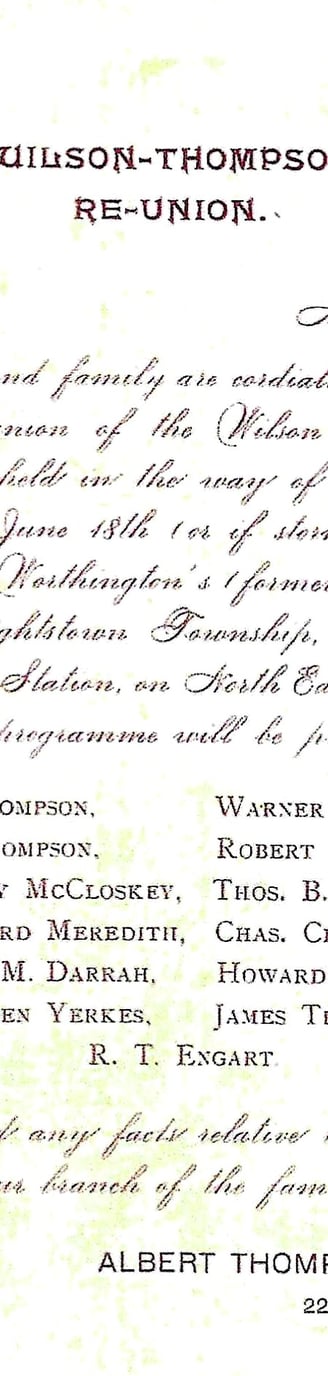 WILSON-THOMPSO
RE-UNION.
nd family are cordial
nion of the Wilson
held in the way of
June 18th (or if stor
Worthington's (former
ghtstown Township,
Station, on North Ea
programme will be p
OMPSON, WARNER
OMPSON, ROBERT
Y MCCLOSKEY, THOS. B.
RD MEREDITH, CHAS. C
M. DARRAH, HOWARD
EN YERKES, JAMES T
R. T. ENGART
any facts relative
ur branch of the fam
ALBERT THOMP
22